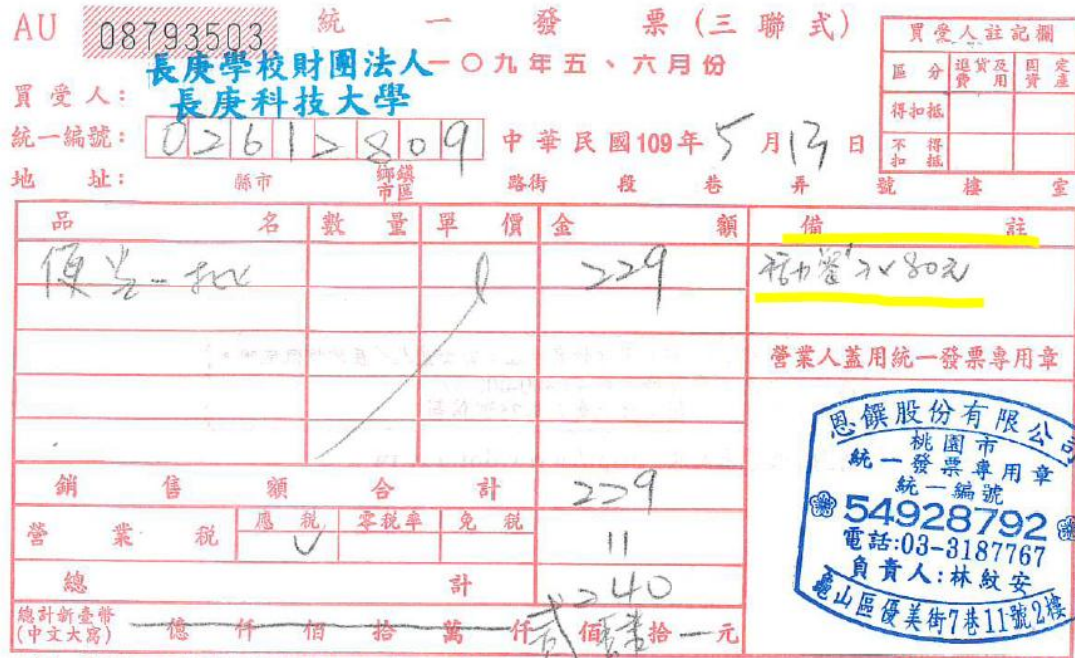 AU 08793503 統一發票(三聯式)
一〇九年五、六月份
買受人: 長庚學校財團法人
長庚科技大學
統一編號: 02612809 中華民國109年5月13日
地址: 縣市 鄉鎮市區 路街 段 巷 弄 號 樓 室
買受人註記欄
區分 進貨及費用 固定資產
得扣抵
不得扣抵
品名 數量 單價 金額 備註
便當一批 229 x80元
營業人蓋用統一發票專用章
銷售額合計 229
營業稅 應稅 V 零稅率 免稅 11
總計 240
總計新臺幣(中文大寫) 億 仟 佰 拾 萬 仟 貳 佰 拾 元
恩饌股份有限公司
桃園市
統一發票專用章
統一編號
54928792
電話:03-3187767
負責人:林紋安
龜山區優美街7巷11號2樓